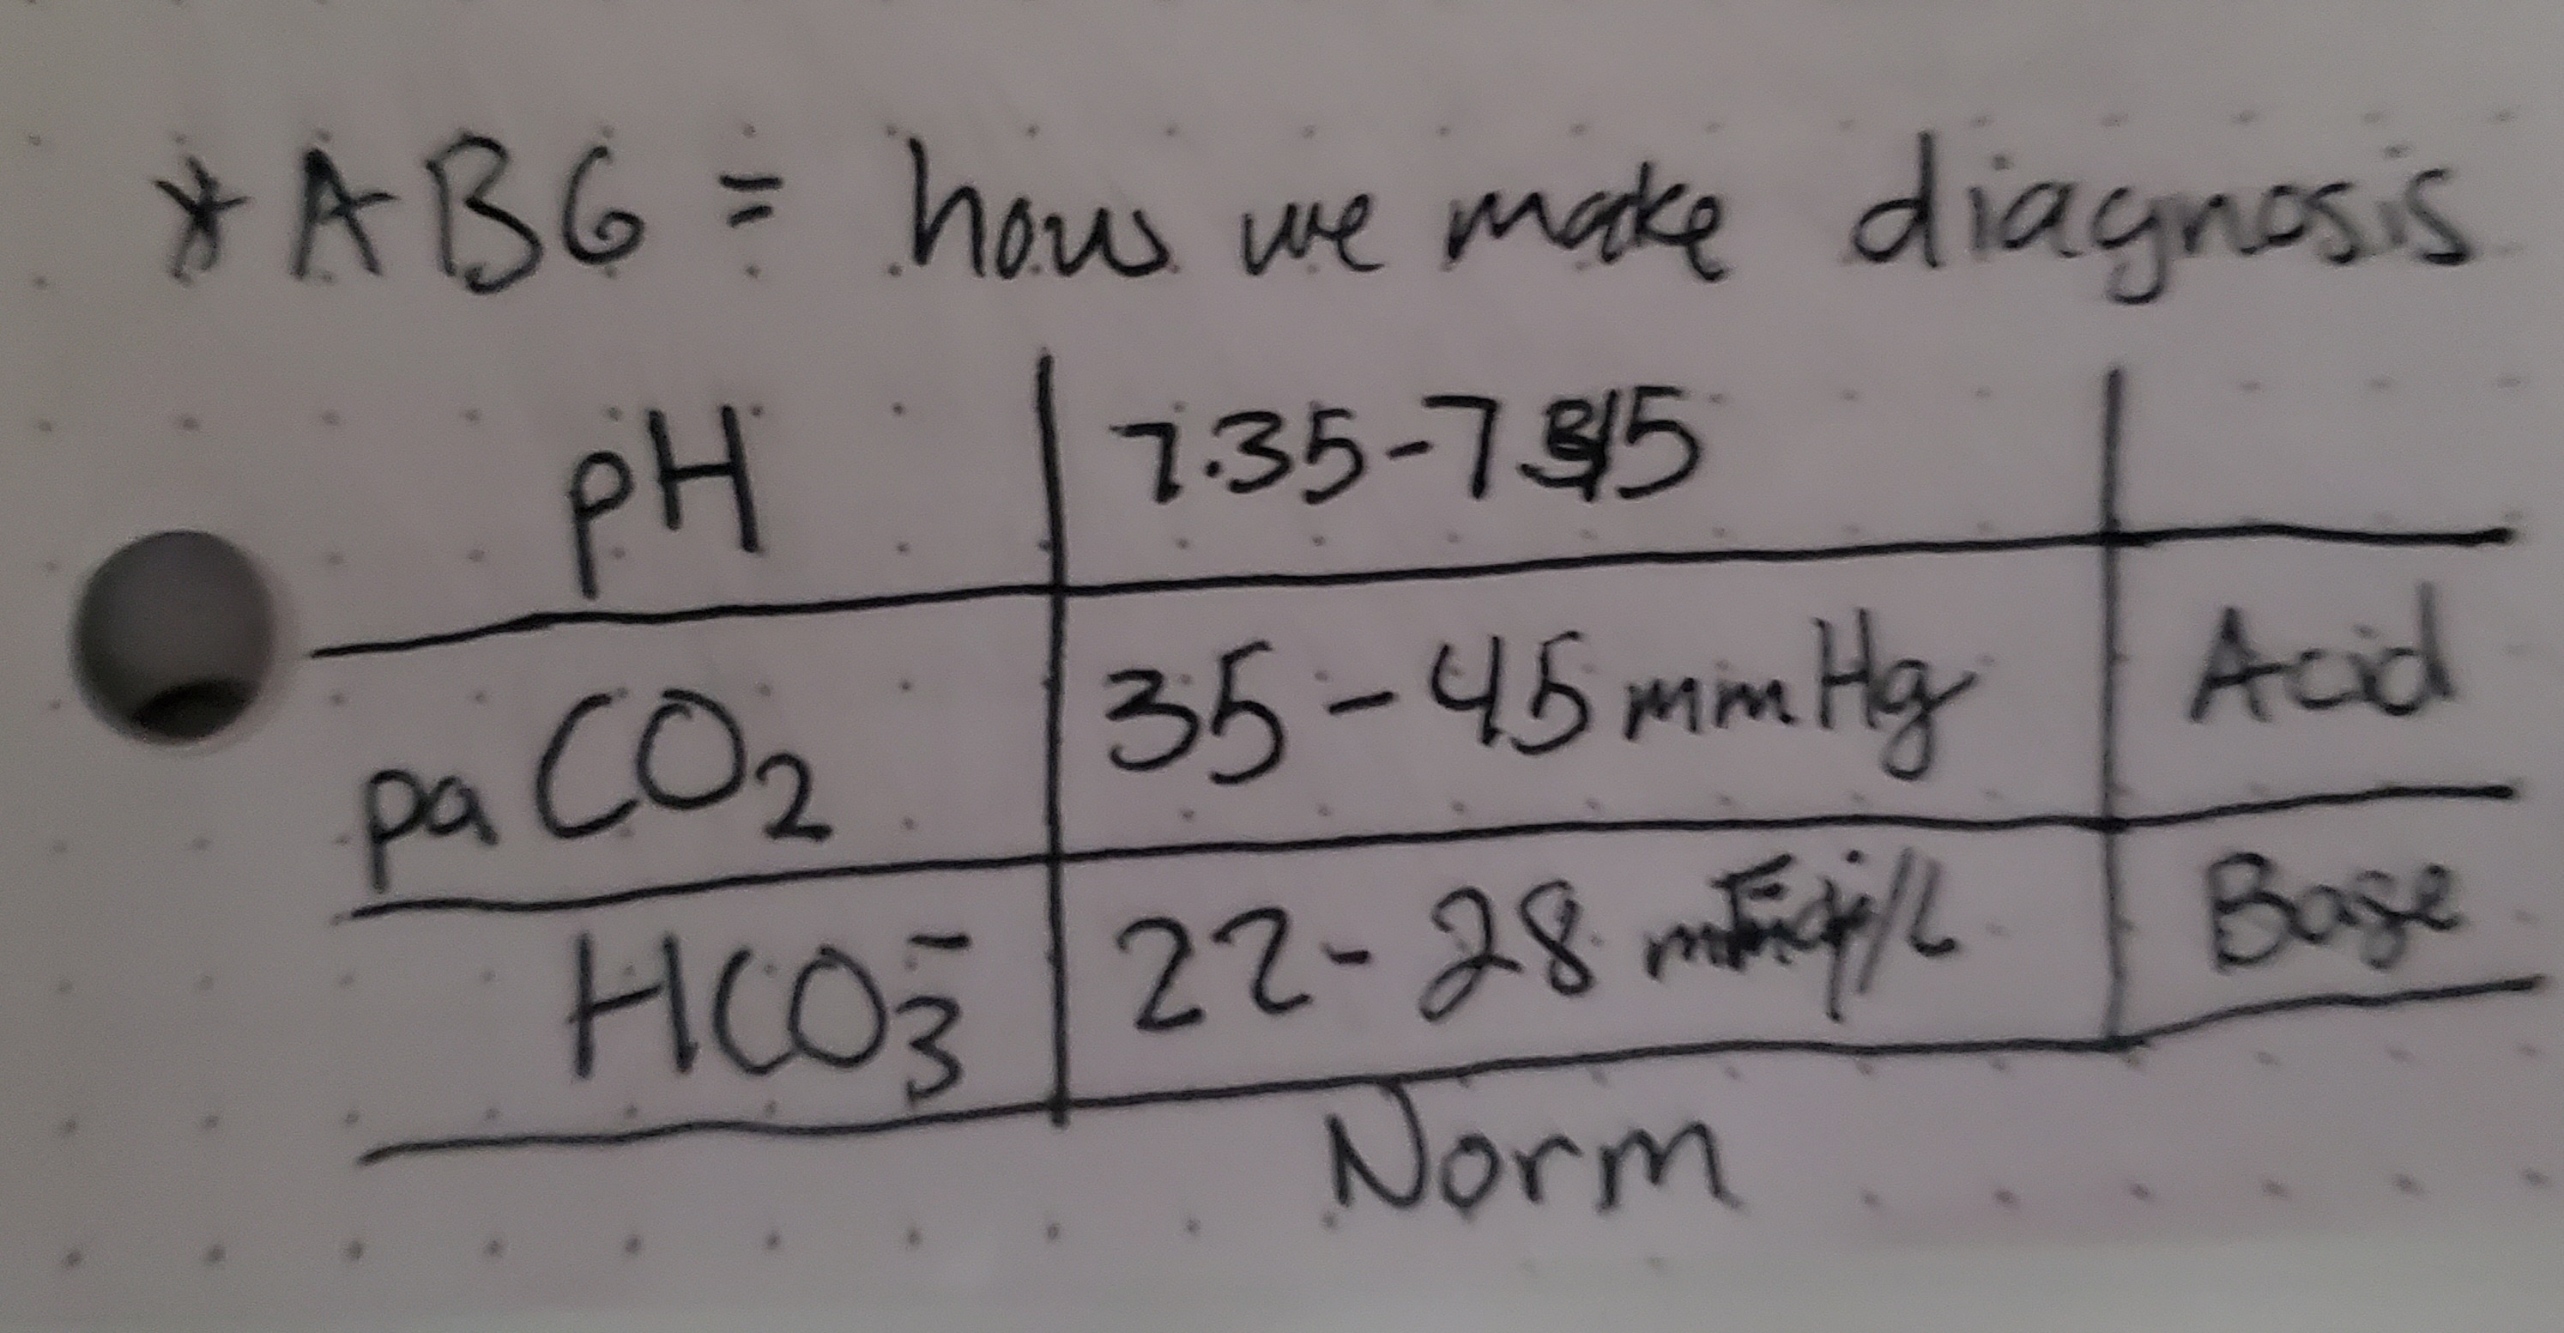 *ABG = how we make diagnosis
pH 7.35-7.45
paCO₂ 35-45 mmHg Acid
HCO₃⁻ 22-28 mEq/L Base
Norm